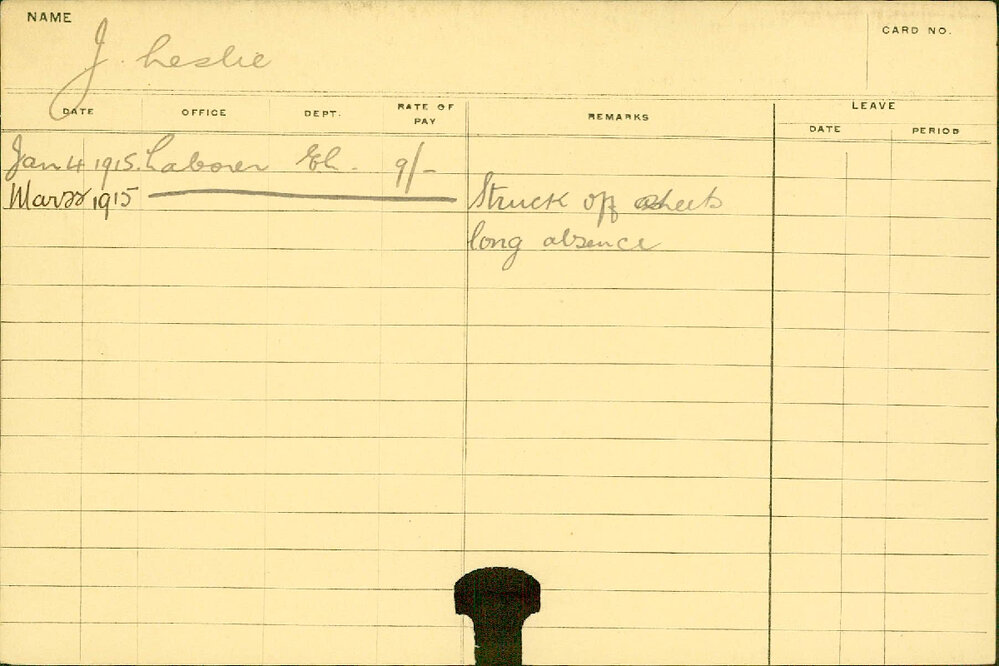 NAME
J. Leslie
CARD NO.
DATE OFFICE DEPT. RATE OF PAY REMARKS LEAVE
DATE PERIOD
Jan 4 1915. Laborer Eh. 9/-
Mar 22 1915 Struck off sheets
long absence